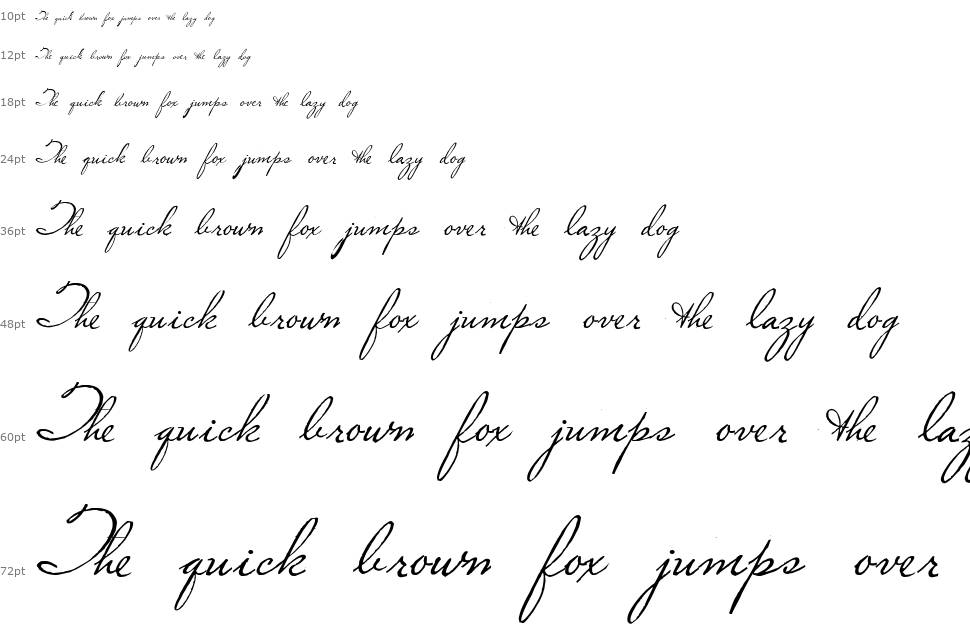 10pt The quick brown fox jumps over the lazy dog
12pt The quick brown fox jumps over the lazy dog
18pt The quick brown fox jumps over the lazy dog
24pt The quick brown fox jumps over the lazy dog
36pt The quick brown fox jumps over the lazy dog
48pt The quick brown fox jumps over the lazy dog
60pt The quick brown fox jumps over the laz
72pt The quick brown fox jumps over